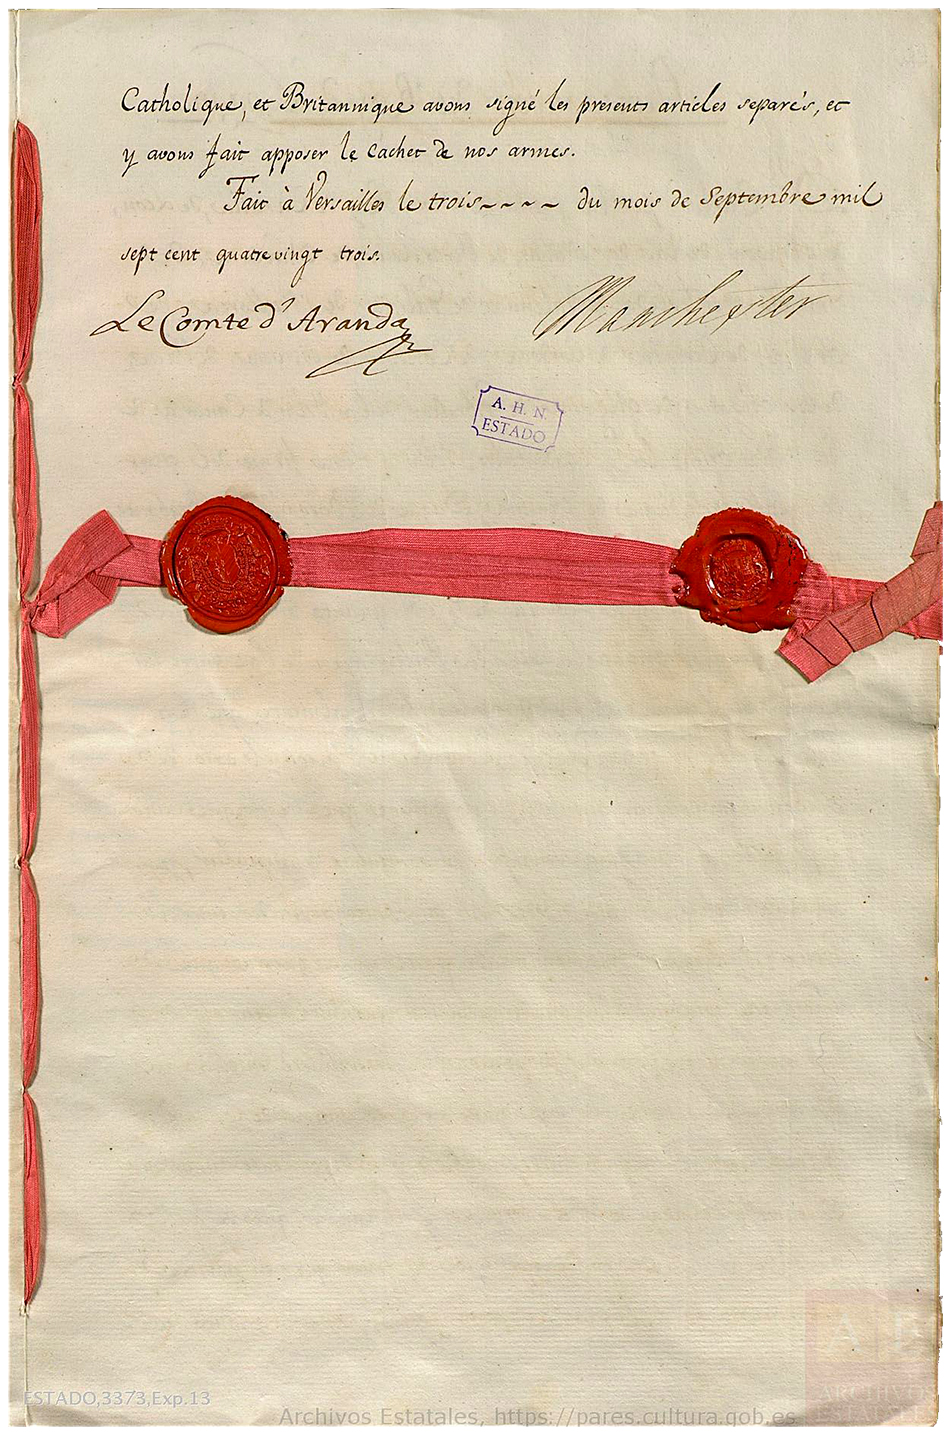 Catholique, et Britannique avons signé les presents articles separés, et
y avons fait apposer le cachet de nos armes.
Fait à Versailles le trois~~~~ du mois de Septembre mil
sept cent quatre vingt trois.
Le Comte d'Aranda
Manchester
A. H. N.
ESTADO
ESTADO,3373,Exp.13
Archivos Estatales, https://pares.cultura.gob.es